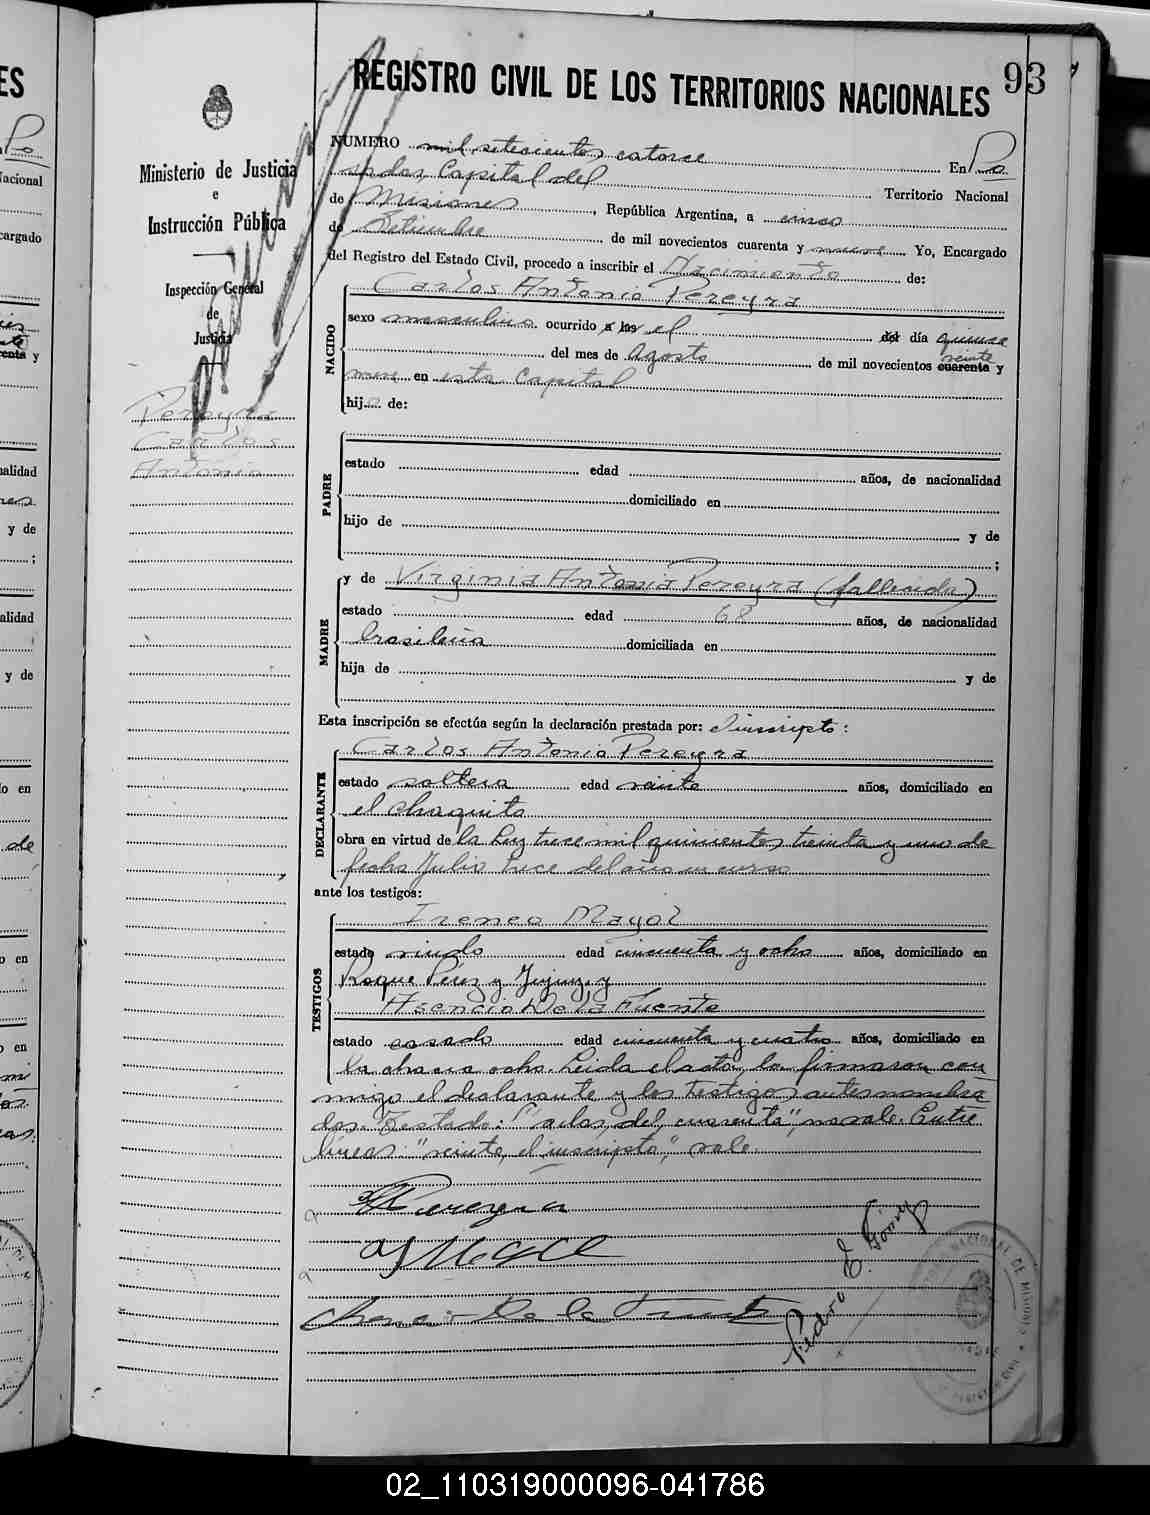 93
REGISTRO CIVIL DE LOS TERRITORIOS NACIONALES
Ministerio de Justicia
e
Instrucción Pública
Inspección General
de
Justicia
Pereyra
Carlos
Antonio
NUMERO mil setecientos catorce En Po
sadas Capital del Territorio Nacional
de Misiones, República Argentina, a cinco
de Setiembre de mil novecientos cuarenta y nueve Yo, Encargado
del Registro del Estado Civil, procedo a inscribir el Nacimiento de:
NACIDO
Carlos Antonio Pereyra
sexo masculino ocurrido a las el del día quince
del mes de Agosto de mil novecientos cuarenta veinte y
nueve en esta Capital
hijo de:
PADRE
estado edad años, de nacionalidad
domiciliado en
hijo de y de
;
MADRE
y de Virginia Antonia Pereyra (fallecida)
estado edad 68 años, de nacionalidad
brasileña domiciliada en
hija de y de
Esta inscripción se efectúa según la declaración prestada por: el inscripto:
DECLARANTE
Carlos Antonio Pereyra
estado soltero edad veinte años, domiciliado en
el Chaquito
obra en virtud de la Ley trece mil quinientos treinta y uno de
fecha Julio trece del año en curso
ante los testigos:
TESTIGOS
Ireneo Mayol
estado viudo edad cincuenta y ocho años, domiciliado en
Roque Pérez y Jujuy y
Asencio De la Fuente
estado casado edad cincuenta y cuatro años, domiciliado en
la chacra ocho. Leida el acta, la firmaron con
migo el declarante y los testigos antes nombra
dos. Testado: "a las, del, cuarenta", no vale. Entre
líneas: "veinte, el inscripto", vale.
Pereyra
De la Fuente
Pedro E.
02_110319000096-041786